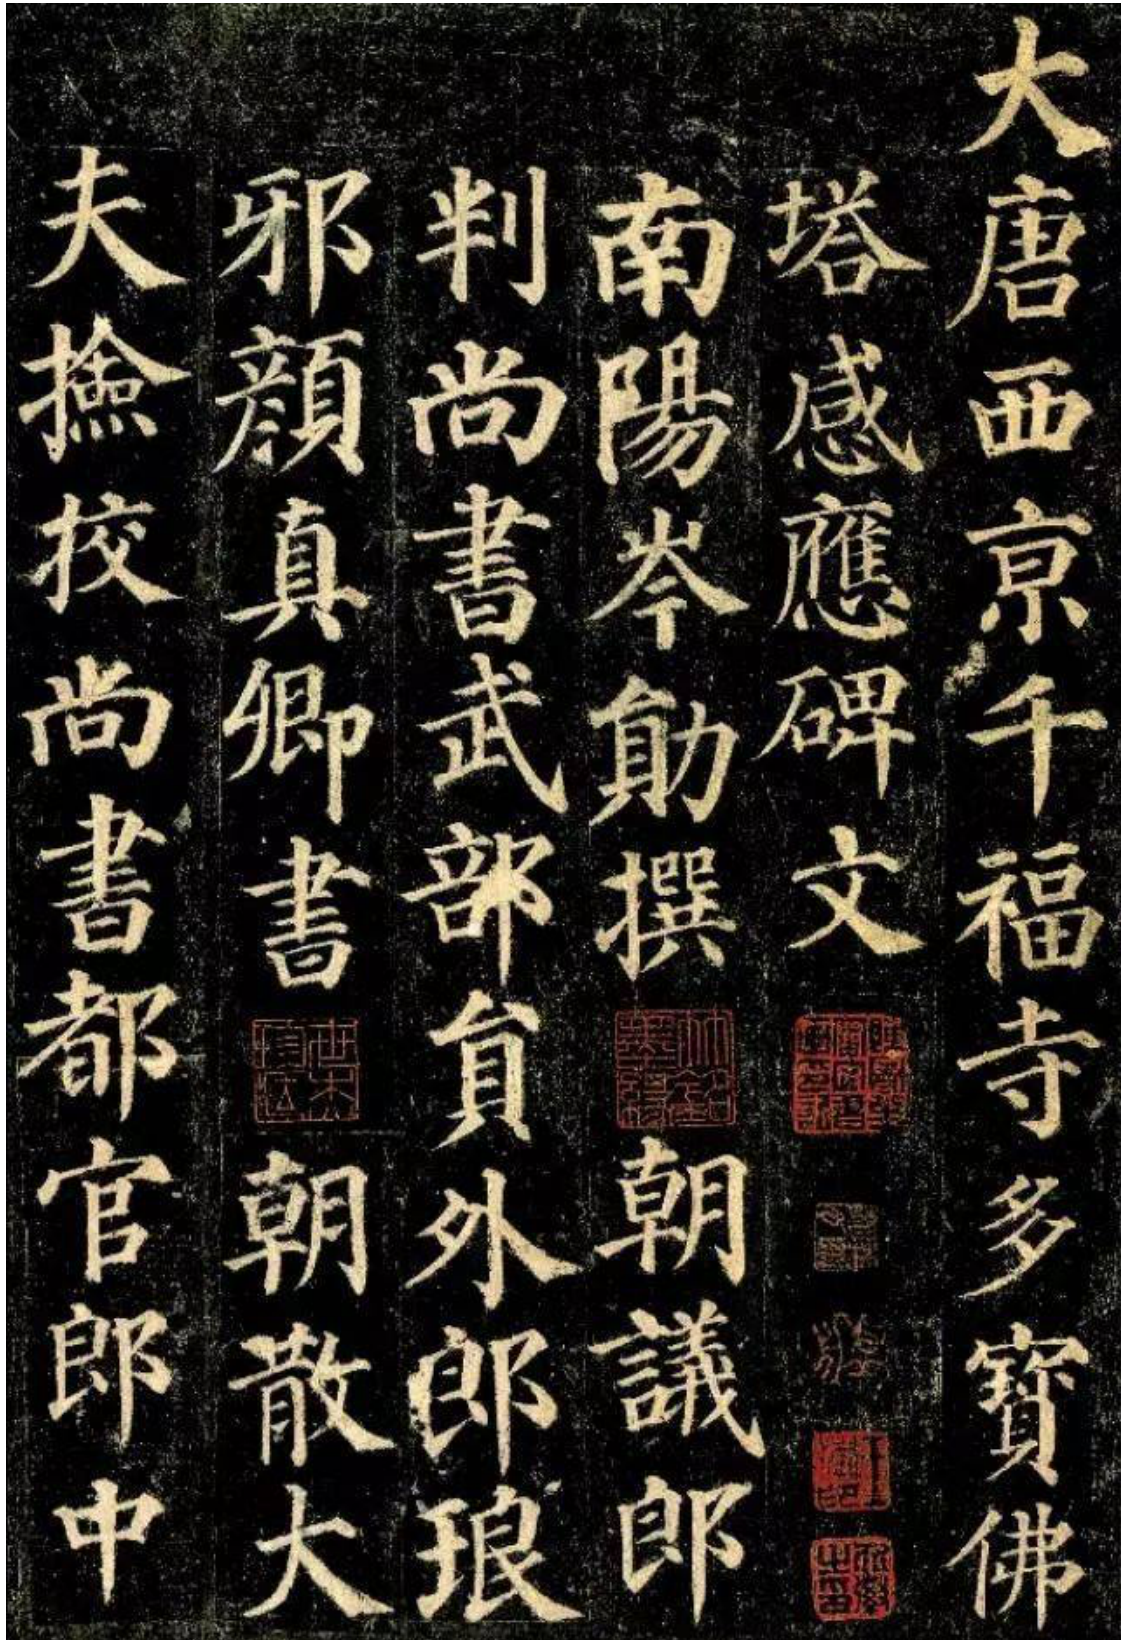 大唐西京千福寺多寶佛
塔感應碑文
南陽岑勛撰 朝議郎
判尚書武部貟外郎琅
邪顏真卿書 朝散大
夫撿挍尚書都官郎中